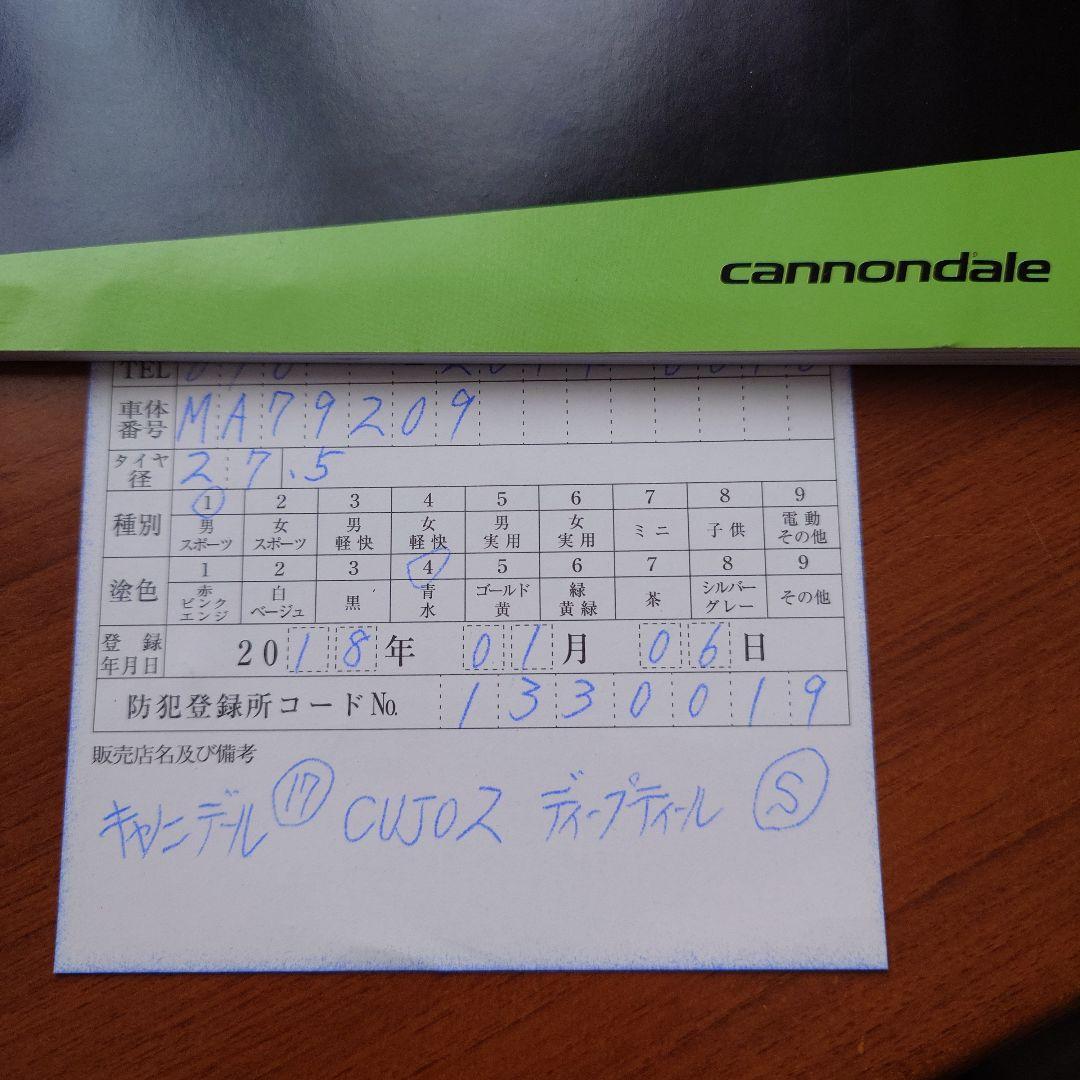 cannondale
TEL
車体番号 MA79209
タイヤ径 27.5
種別 1 2 3 4 5 6 7 8 9
男スポーツ 女スポーツ 男軽快 女軽快 男実用 女実用 ミニ 子供 電動その他
塗色 1 2 3 4 5 6 7 8 9
赤ピンクエンジ 白ベージュ 黒 青水 ゴールド黄 緑黄緑 茶 シルバーグレー その他
登録年月日 2018年 01月 06日
防犯登録所コードNo. 1330019
販売店名及び備考
キャノンデール 17 CUJO2 ディープティール S